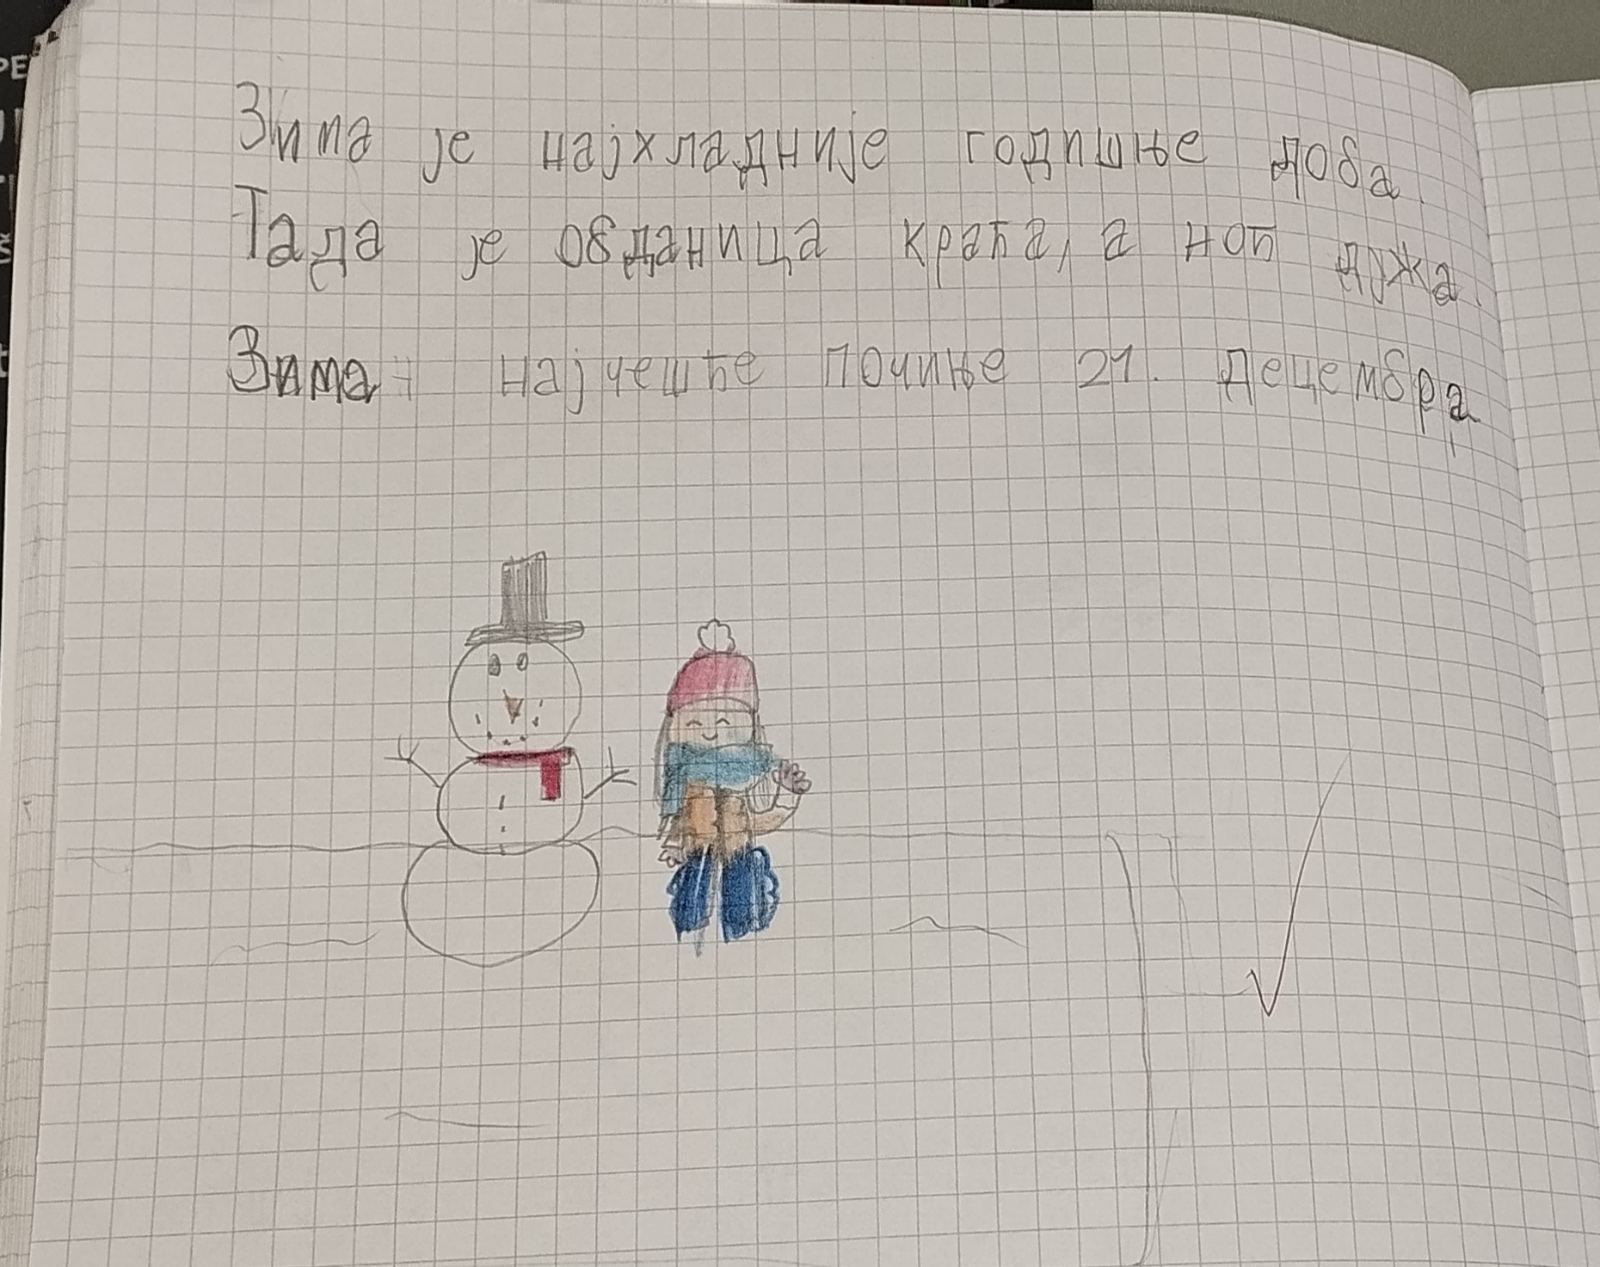 Зима је најхладније годишње доба.
Тада је обданица краћа, а ноћ дужа.
Зима најчешће почиње 21. децембра